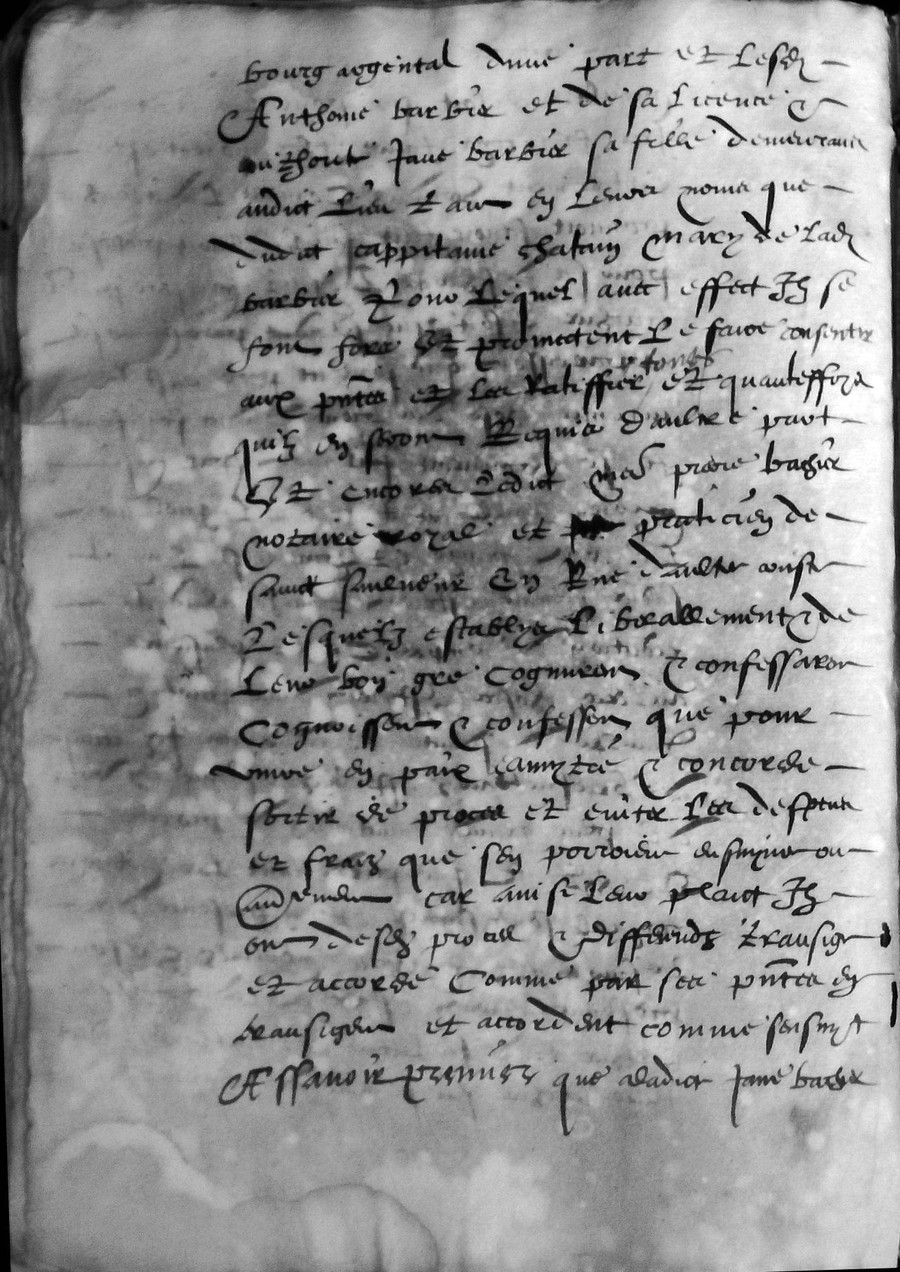 bourg argental dune part et lesd
Anthoine barbier et de sa licence &
authorite Jane barbier sa fille demeurans
audict lieu tant en leurs noms que
dudict cappitaine chatain mary de lad
barbier pour lequel avec effect Ilz se
font fort et promectent le faire consentir
aux pntes et les Ratiffier et quanteffoys
quilz en seront Requis daultre part
Et encores ledict me pierre bachier
notaire royal et praticien de
sainct saulveur en Rue daultre
Lesquelz establys liberallement & de
Leur bon gre cogneurent & confessarent
Cognoissent & confessent que pour
vivre en paix amytie & concorde
sortir de proces et eviter les despens
et fraiz que sen porroient ensuyvre ou
advenir car ainsi leur plaict Ilz
ont desd proces & differends transige
et accorde Comme par ses pntes en
transigent et accordent comme sensuyt
Assavoir premier que ladicte Jane barbier